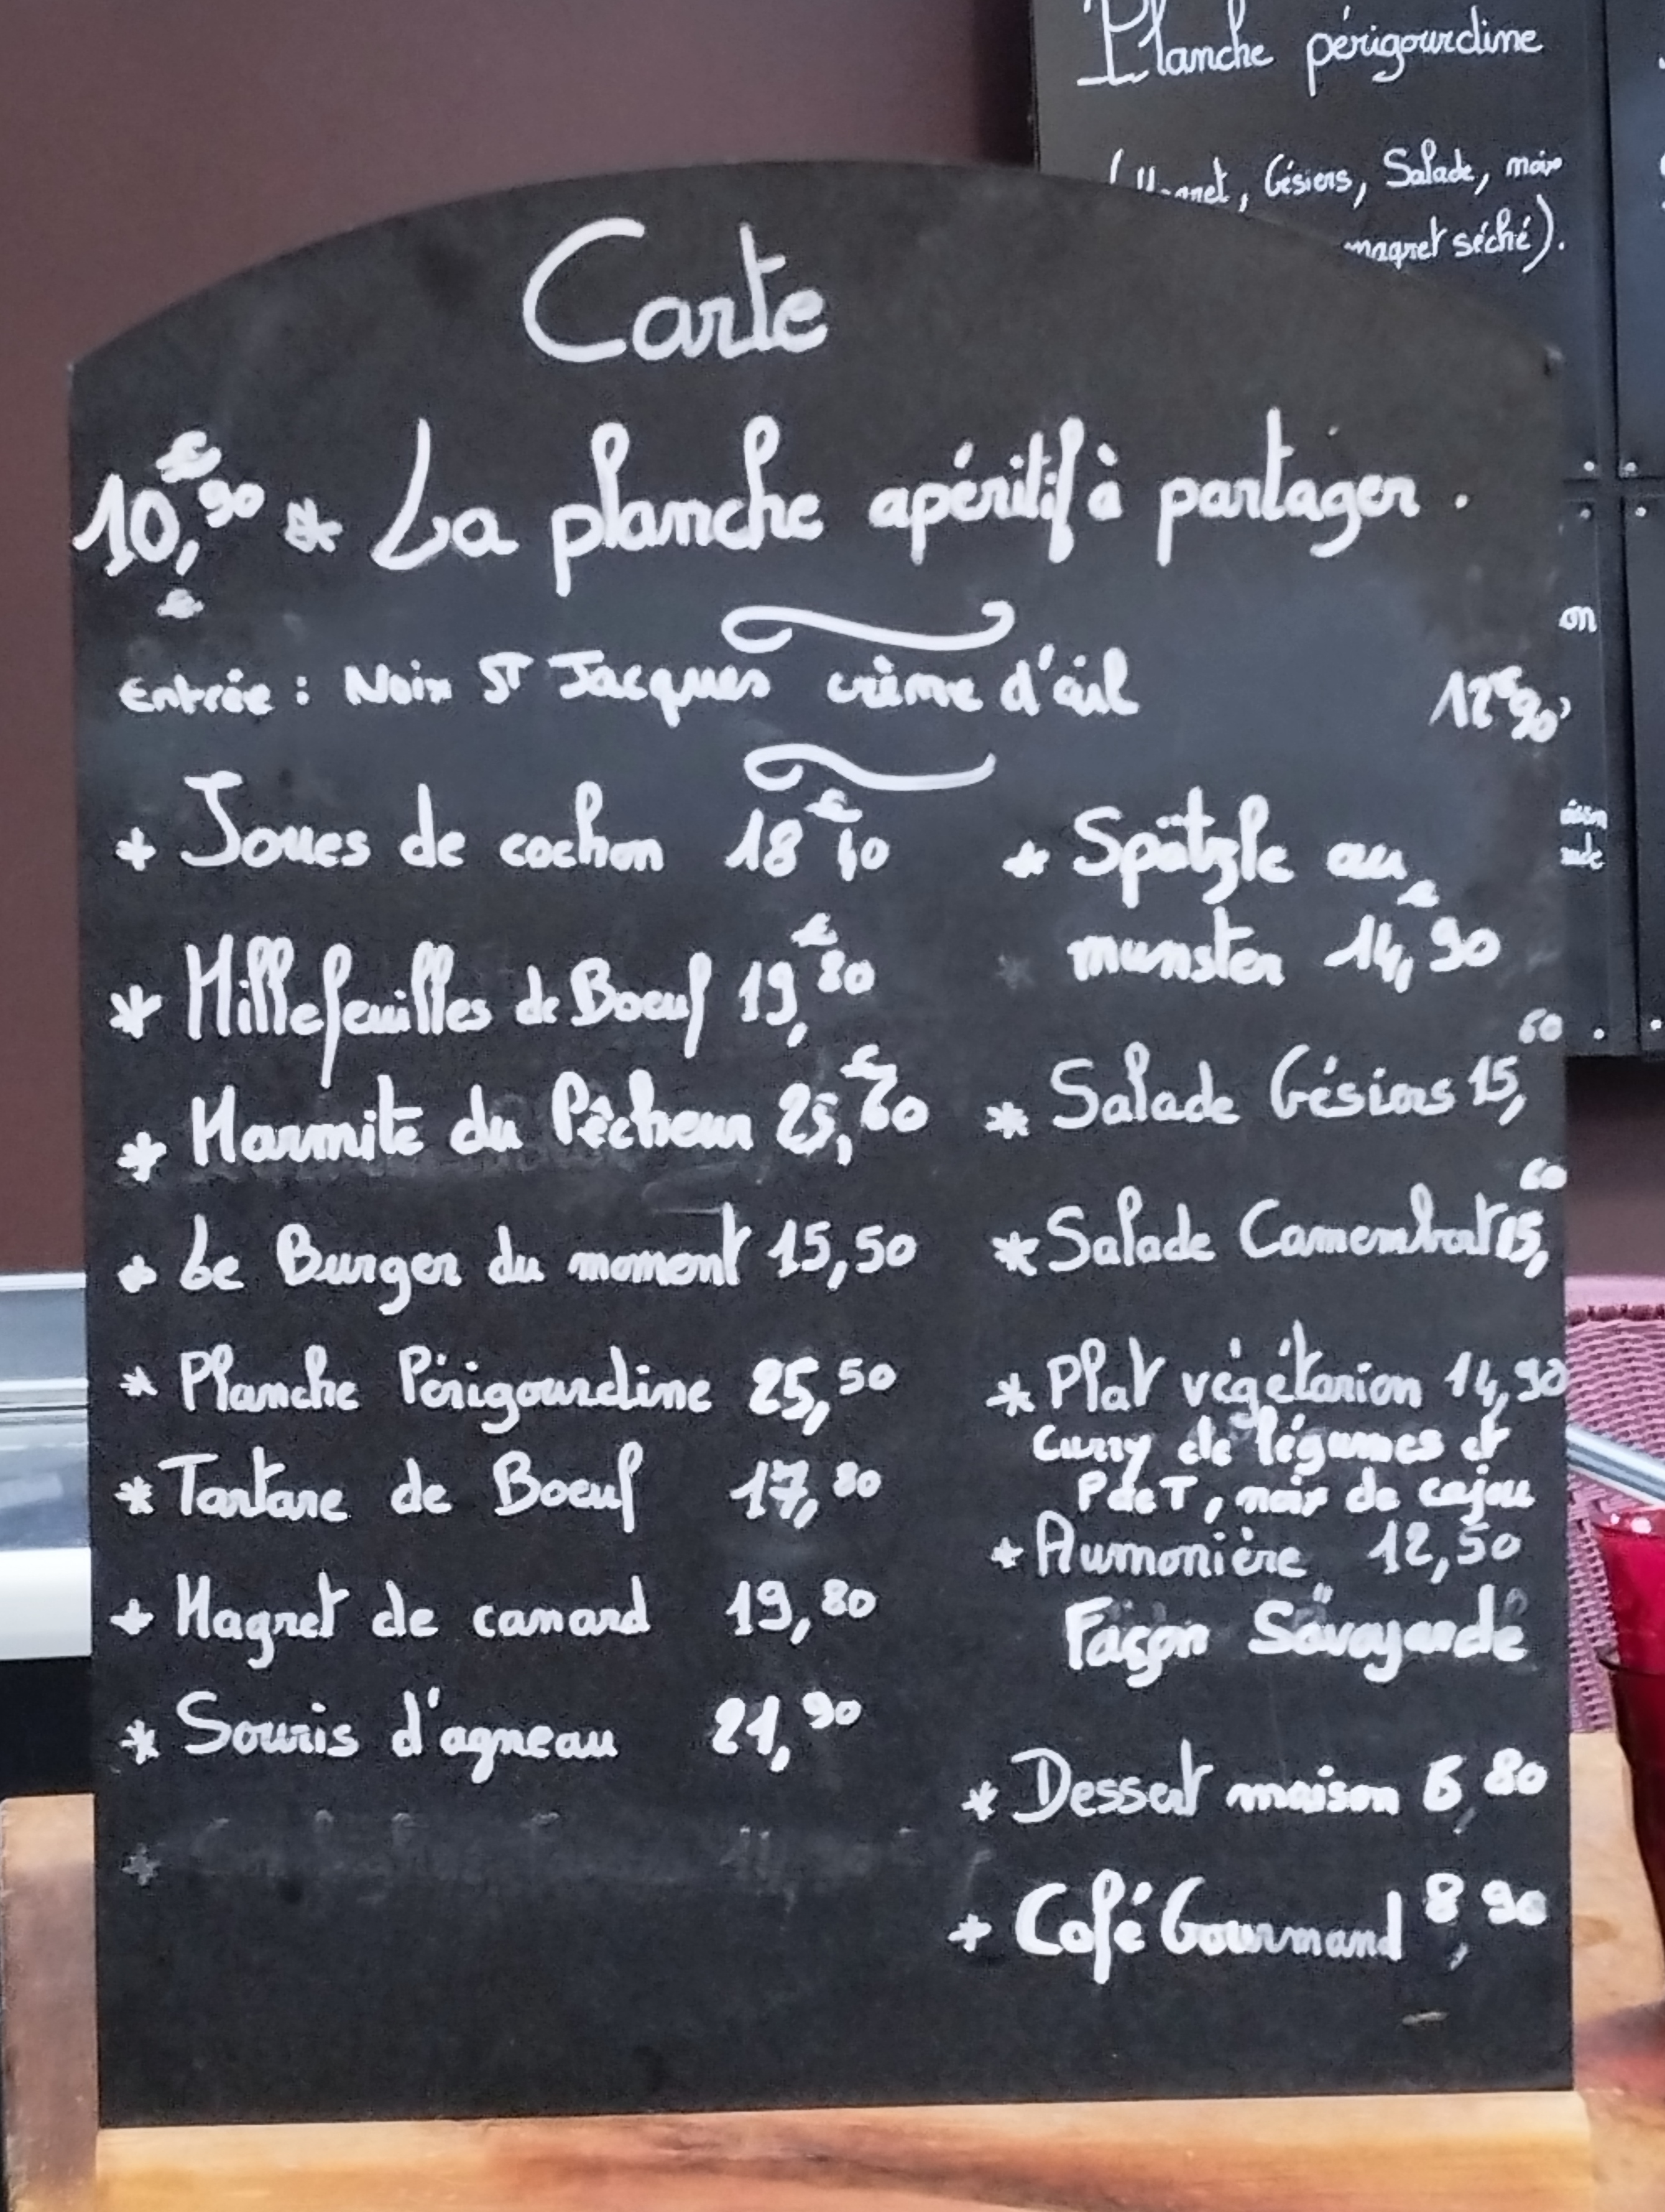 Planche périgourdine
Gésiers, Salade,
magret séché).
Carte
10,€90 * La planche apéritif à partager.
Entrée : Noix ST Jacques crème d'ail 12€90
* Joues de cochon 18€40
* Millefeuilles de Boeuf 19,€80
* Marmite du Pêcheur 25,€60
* Le Burger du moment 15,50
* Planche Périgourdine 25,50
* Tartare de Boeuf 17,80
* Magret de canard 19,80
* Souris d'agneau 21,90
* Spätzle au
munster 14,€90
* Salade Gésiers 15,60
* Salade Camembert 15,60
* Plat végétarien 14,90
Curry de légumes et
P de T, noix de cajou
* Aumonière 12,50
Façon Savoyarde
* Dessert maison 6,80
* Café Gourmand 8,90